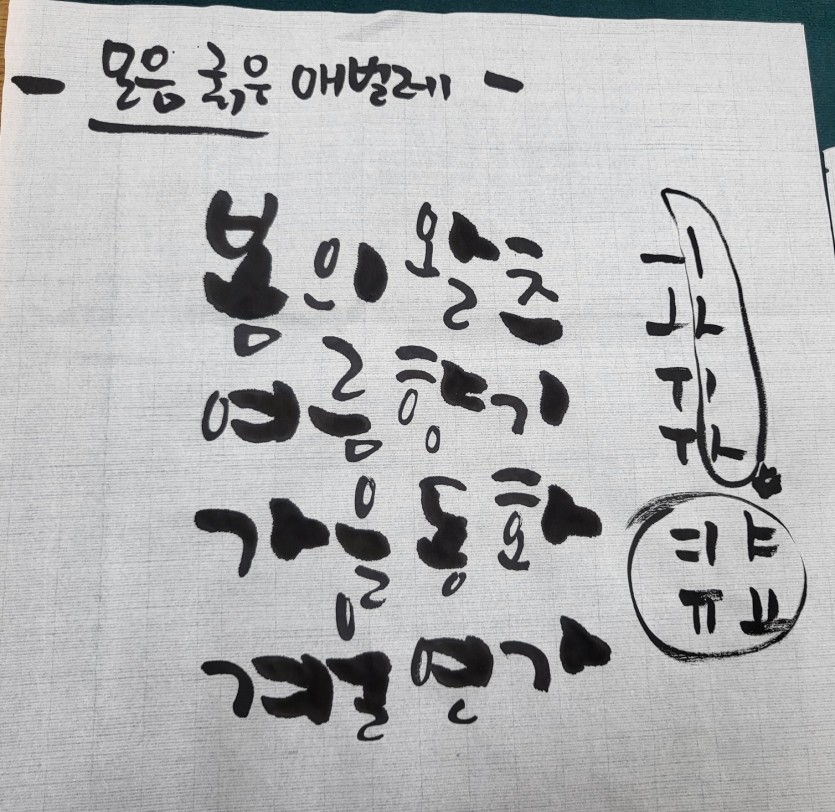 - 모음 굵은 애벌레 -
봄의 왈츠
여름향기
가을동화
겨울연가
ㅢ
ㅘ
ㅟ
ㅝ
ㅕ ㅑ
ㅠ ㅛ